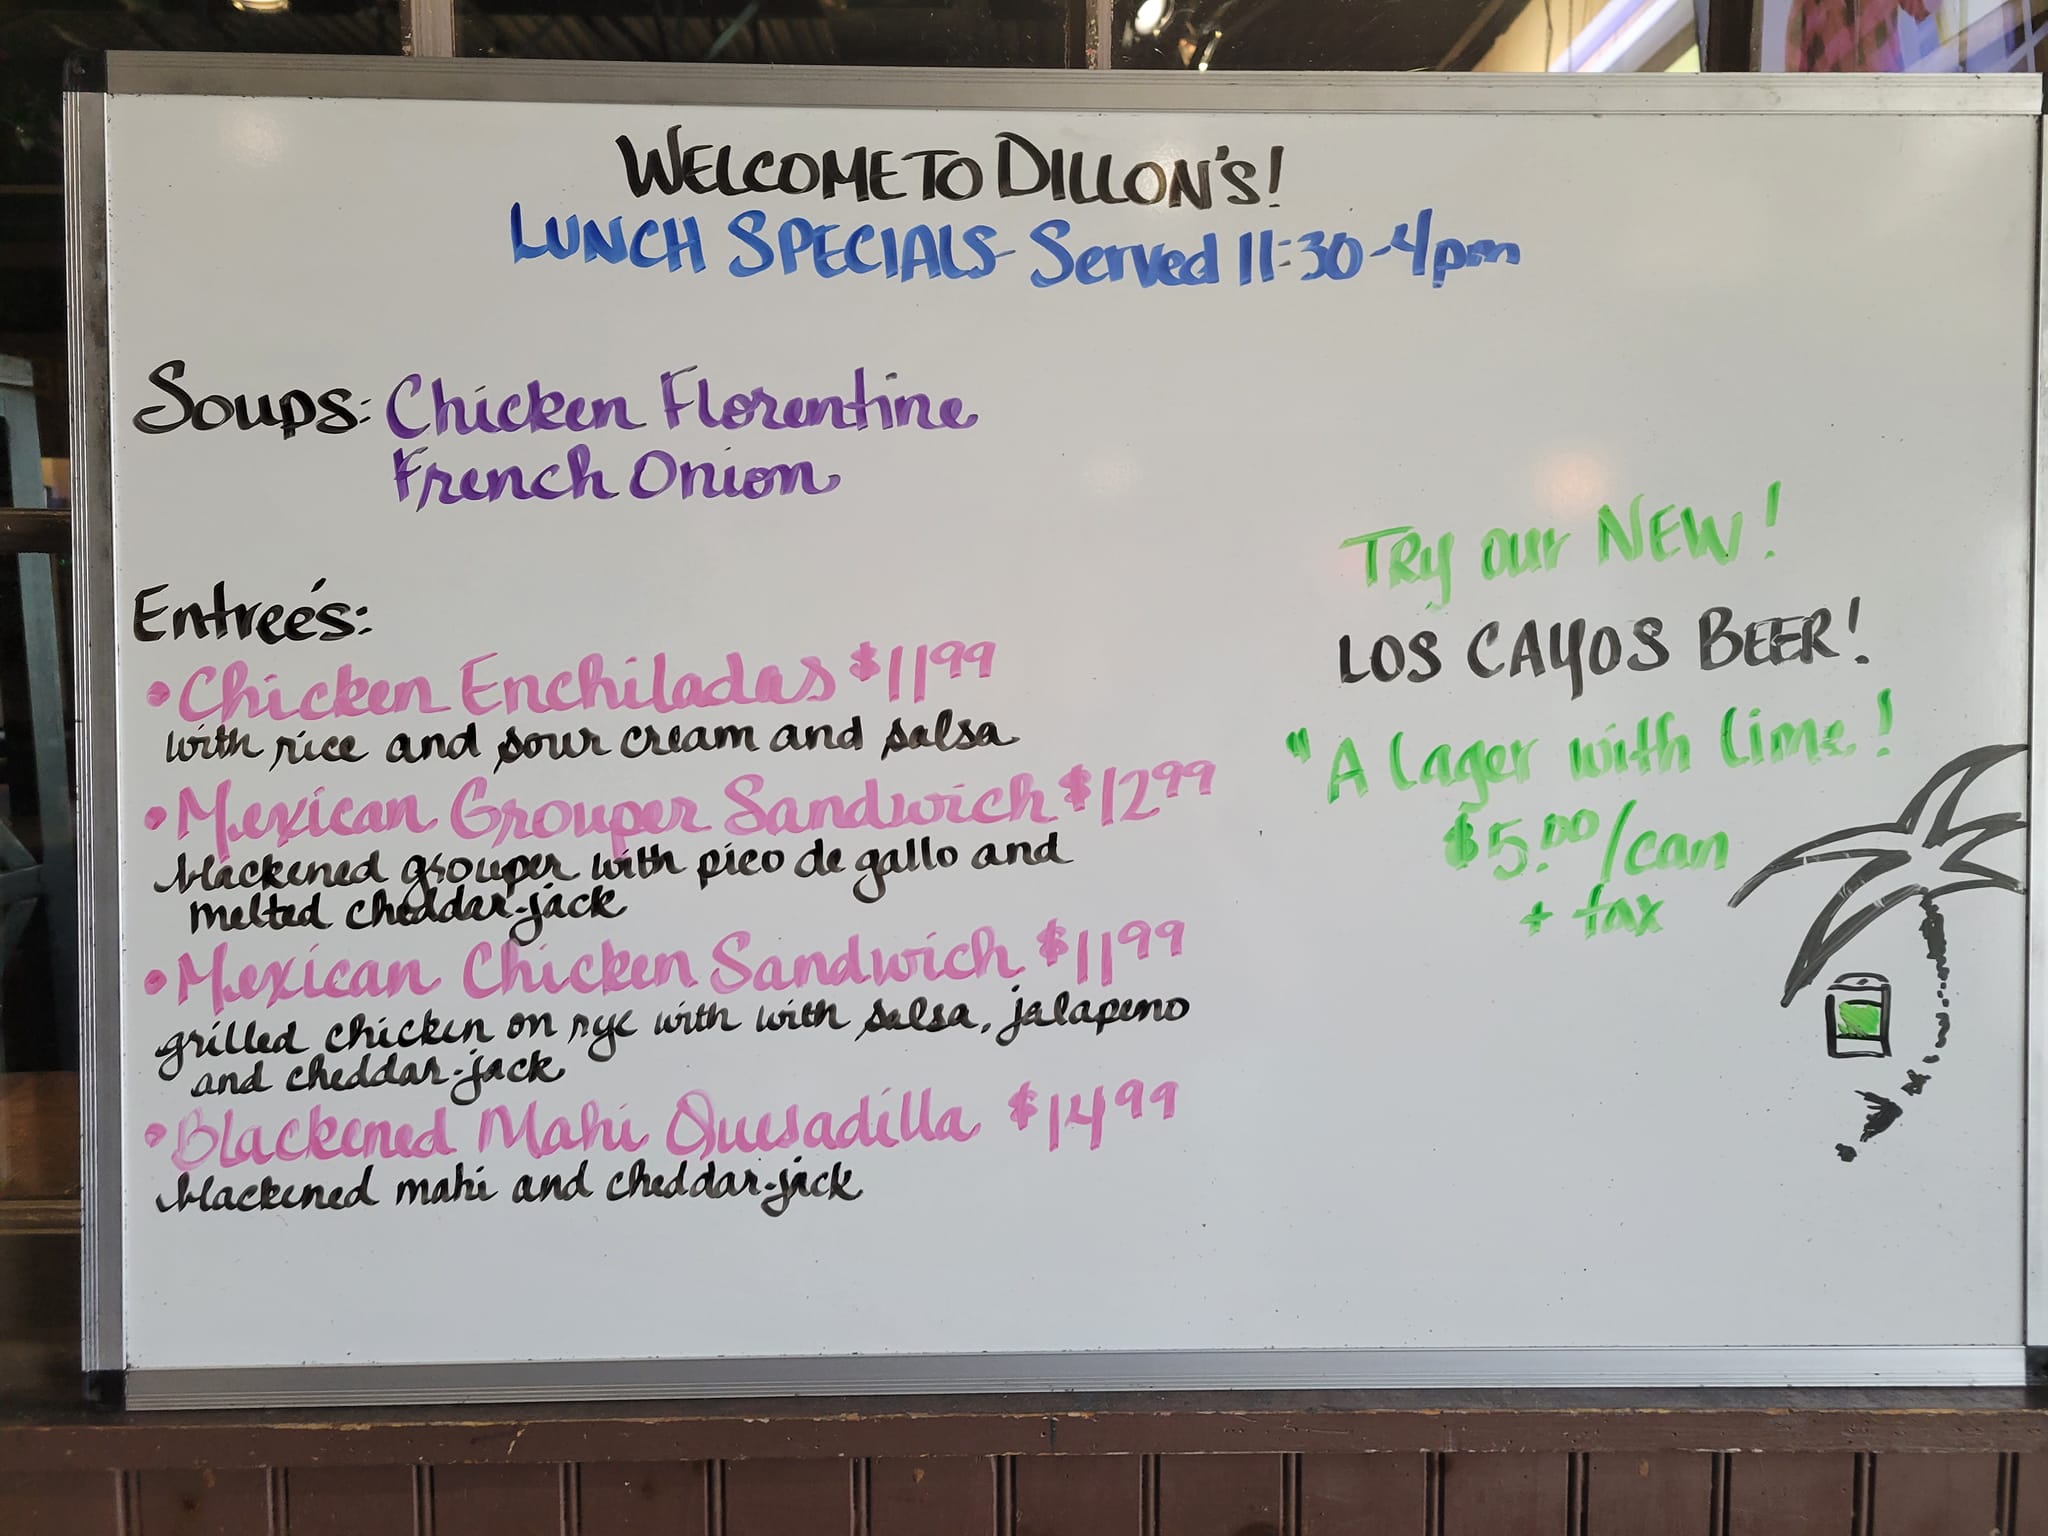 WELCOME TO DILLON'S!
LUNCH SPECIALS - Served 11:30-4pm
Soups: Chicken Florentine
French Onion
Entreés:
• Chicken Enchiladas $11.99
with rice and sour cream and salsa
• Mexican Grouper Sandwich $12.99
blackened grouper with pico de gallo and
melted cheddar-jack
• Mexican Chicken Sandwich $11.99
grilled chicken on rye with with salsa, jalapeno
and cheddar-jack
• Blackened Mahi Quesadilla $14.99
blackened mahi and cheddar-jack
TRY our NEW!
LOS CAYOS BEER!
"A Lager with Lime!
$5.00/can
+ tax